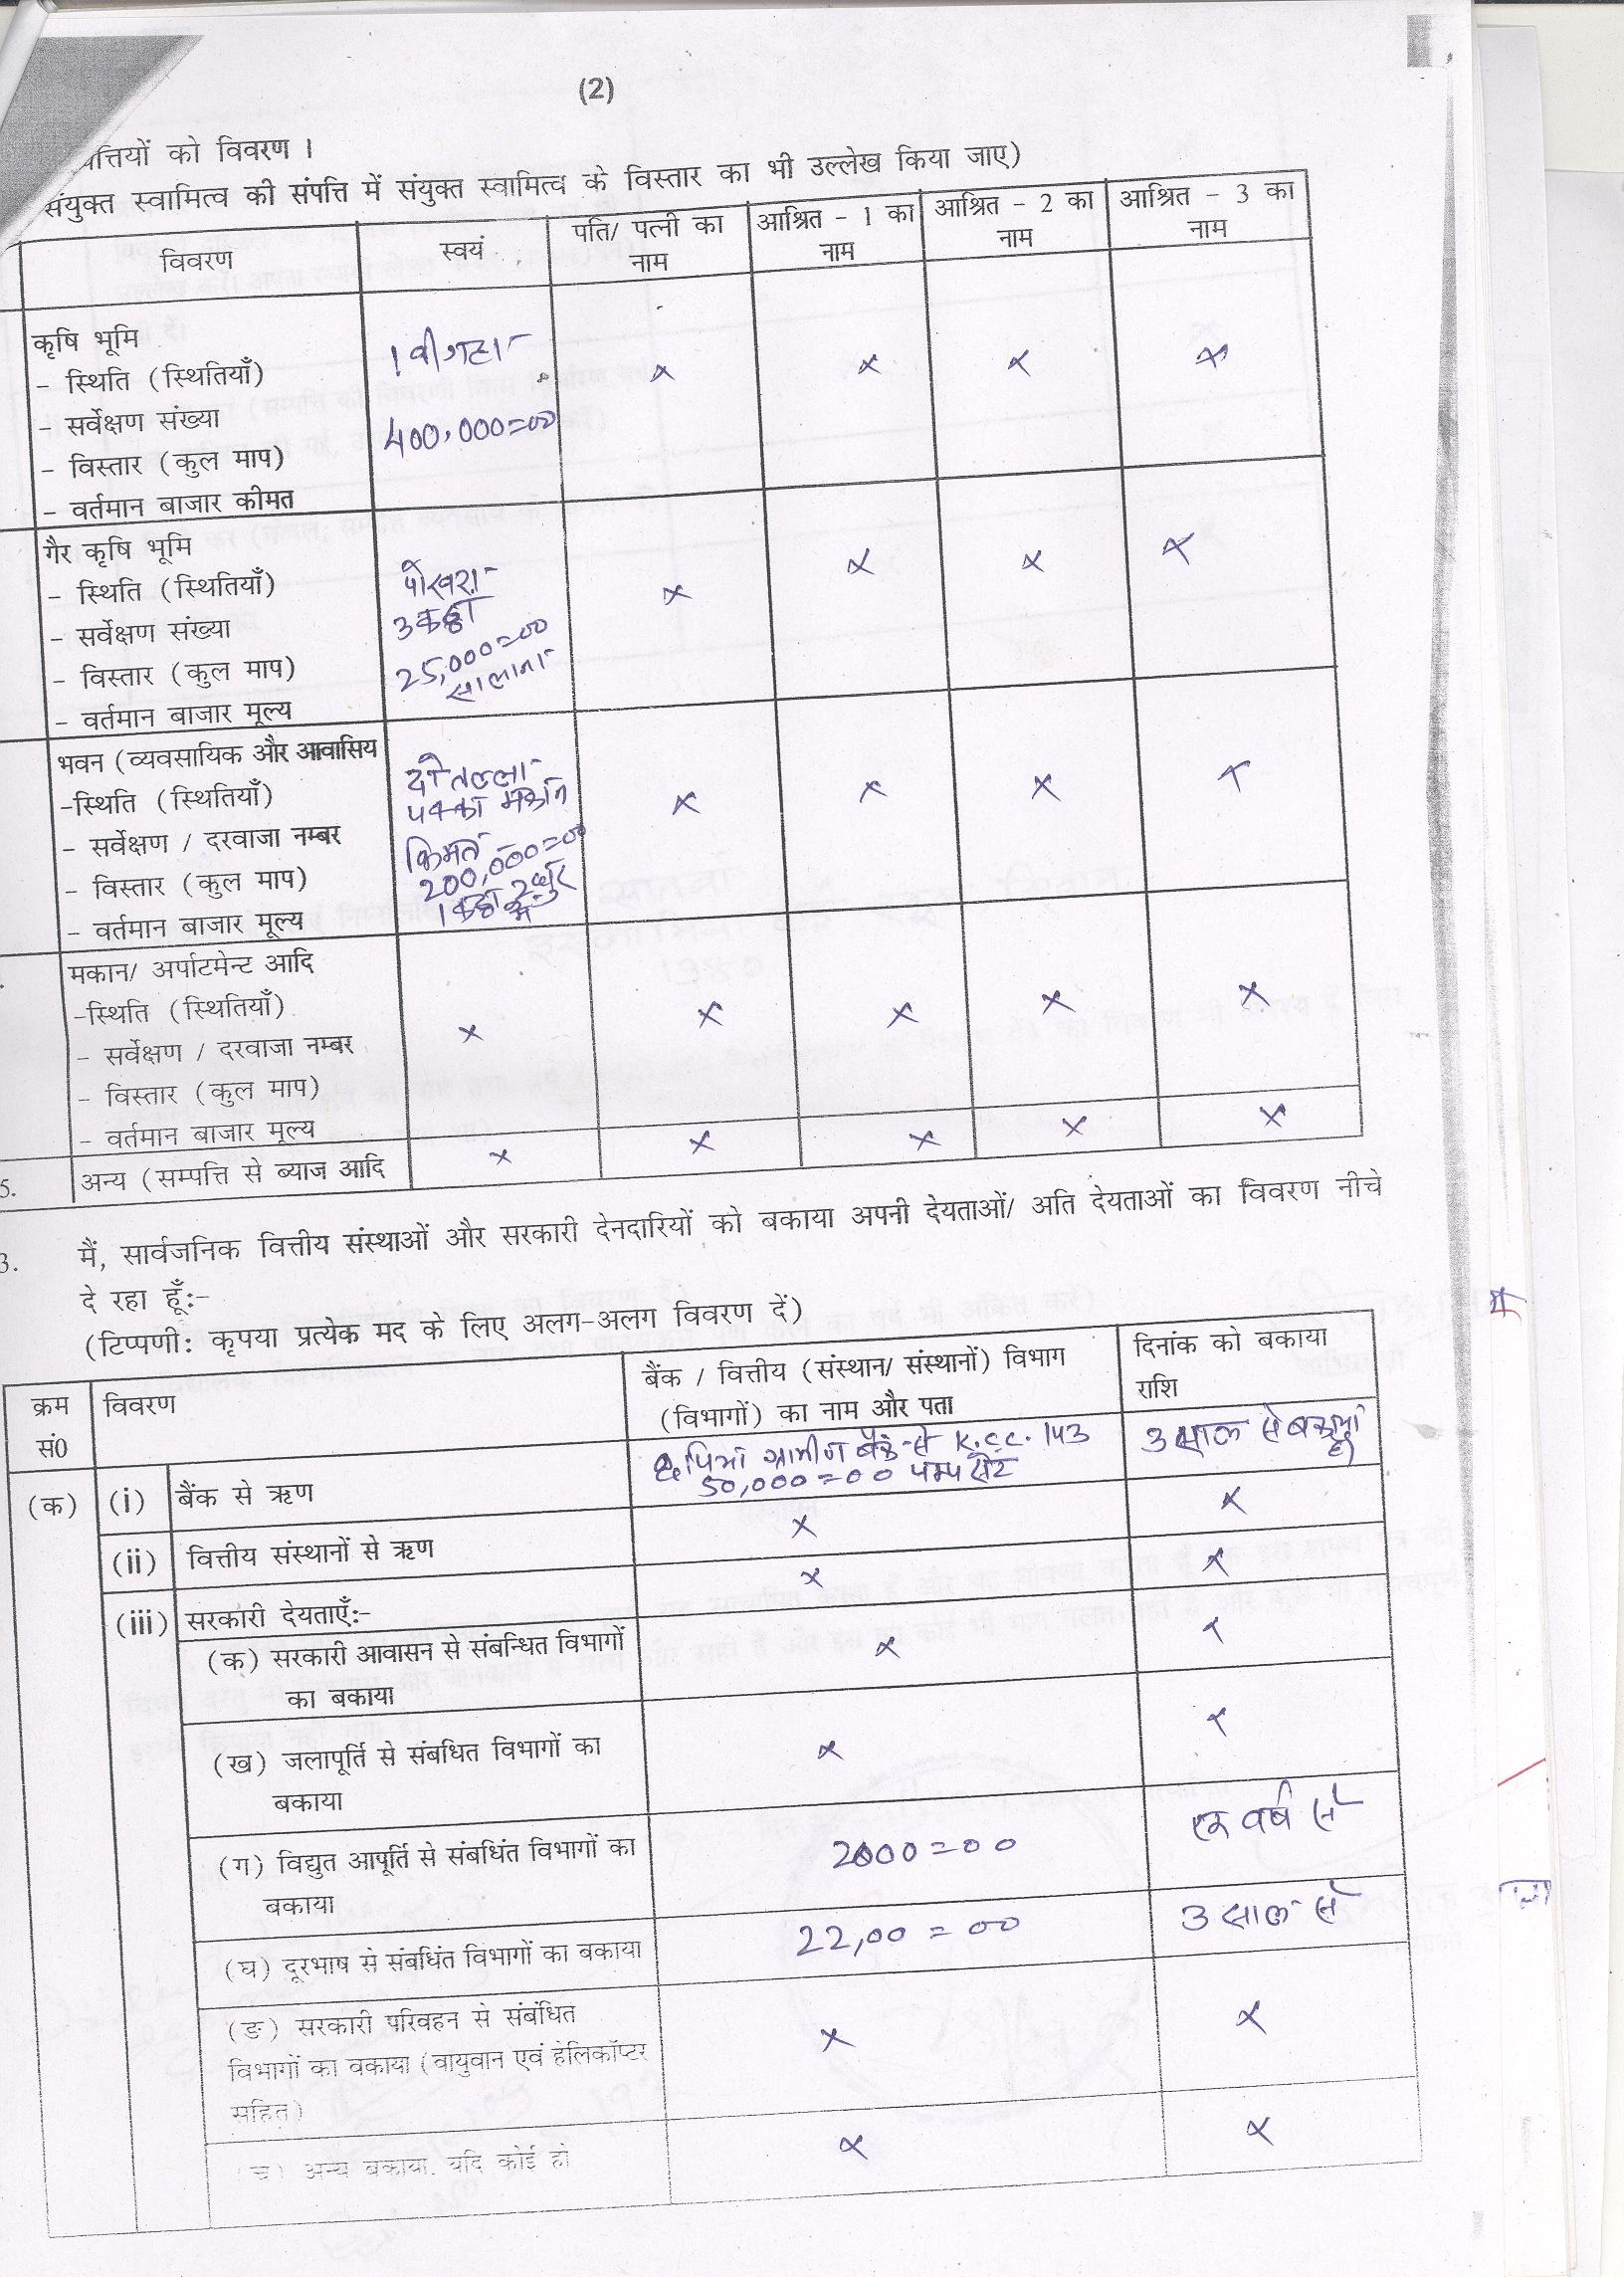 (2)
त्तियों को विवरण ।
संयुक्त स्वामित्व की संपत्ति में संयुक्त स्वामित्व के विस्तार का भी उल्लेख किया जाए)
विवरण
स्वयं
पति/ पत्नी का नाम
आश्रित - 1 का नाम
आश्रित - 2 का नाम
आश्रित - 3 का नाम
कृषि भूमि
- स्थिति (स्थितियाँ)
- सर्वेक्षण संख्या
- विस्तार (कुल माप)
- वर्तमान बाजार कीमत
1 वीगहा
400,000=00
x x x x
गैर कृषि भूमि
- स्थिति (स्थितियाँ)
- सर्वेक्षण संख्या
- विस्तार (कुल माप)
- वर्तमान बाजार मूल्य
पोखरा
3 कठ्ठा
25,000=00
सालाना
x x x x
भवन (व्यवसायिक और आवासिय
-स्थिति (स्थितियाँ)
- सर्वेक्षण / दरवाजा नम्बर
- विस्तार (कुल माप)
- वर्तमान बाजार मूल्य
दो तल्ला
पक्का मकान
किमत
200,000=00
1 कठ्ठा 2 धुर
में
x x x x
मकान/ अर्पाटमेन्ट आदि
-स्थिति (स्थितियाँ)
- सर्वेक्षण / दरवाजा नम्बर
- विस्तार (कुल माप)
- वर्तमान बाजार मूल्य
x x x x x
5. अन्य (सम्पत्ति से ब्याज आदि x x x x x
3. मैं, सार्वजनिक वित्तीय संस्थाओं और सरकारी देनदारियों को बकाया अपनी देयताओं/ अति देयताओं का विवरण नीचे
दे रहा हूँ:-
(टिप्पणी: कृपया प्रत्येक मद के लिए अलग-अलग विवरण दें)
क्रम सं0
विवरण
बैंक / वित्तीय (संस्थान/ संस्थानों) विभाग
(विभागों) का नाम और पता
दिनांक को बकाया
राशि
(क) (i) बैंक से ऋण
ग्रामीण बैंक से K.C.C. 143
50,000=00 पम्प सेट
3 साल से बकाया है
(ii) वित्तीय संस्थानों से ऋण x x
(iii) सरकारी देयताएँ:- x x
(क) सरकारी आवासन से संबन्धित विभागों
का बकाया
x x
(ख) जलापूर्ति से संबधित विभागों का
बकाया
x x
(ग) विद्युत आपूर्ति से संबधिंत विभागों का
बकाया
2000=00
एक वर्ष से
(घ) दूरभाष से संबधिंत विभागों का बकाया
22,00=00
3 साल से
(ङ) सरकारी परिवहन से संबंधित
विभागों का वकाया (वायुवान एवं हेलिकॉप्टर
सहित)
x x
(च) अन्य बकाया, यदि कोई हो x x